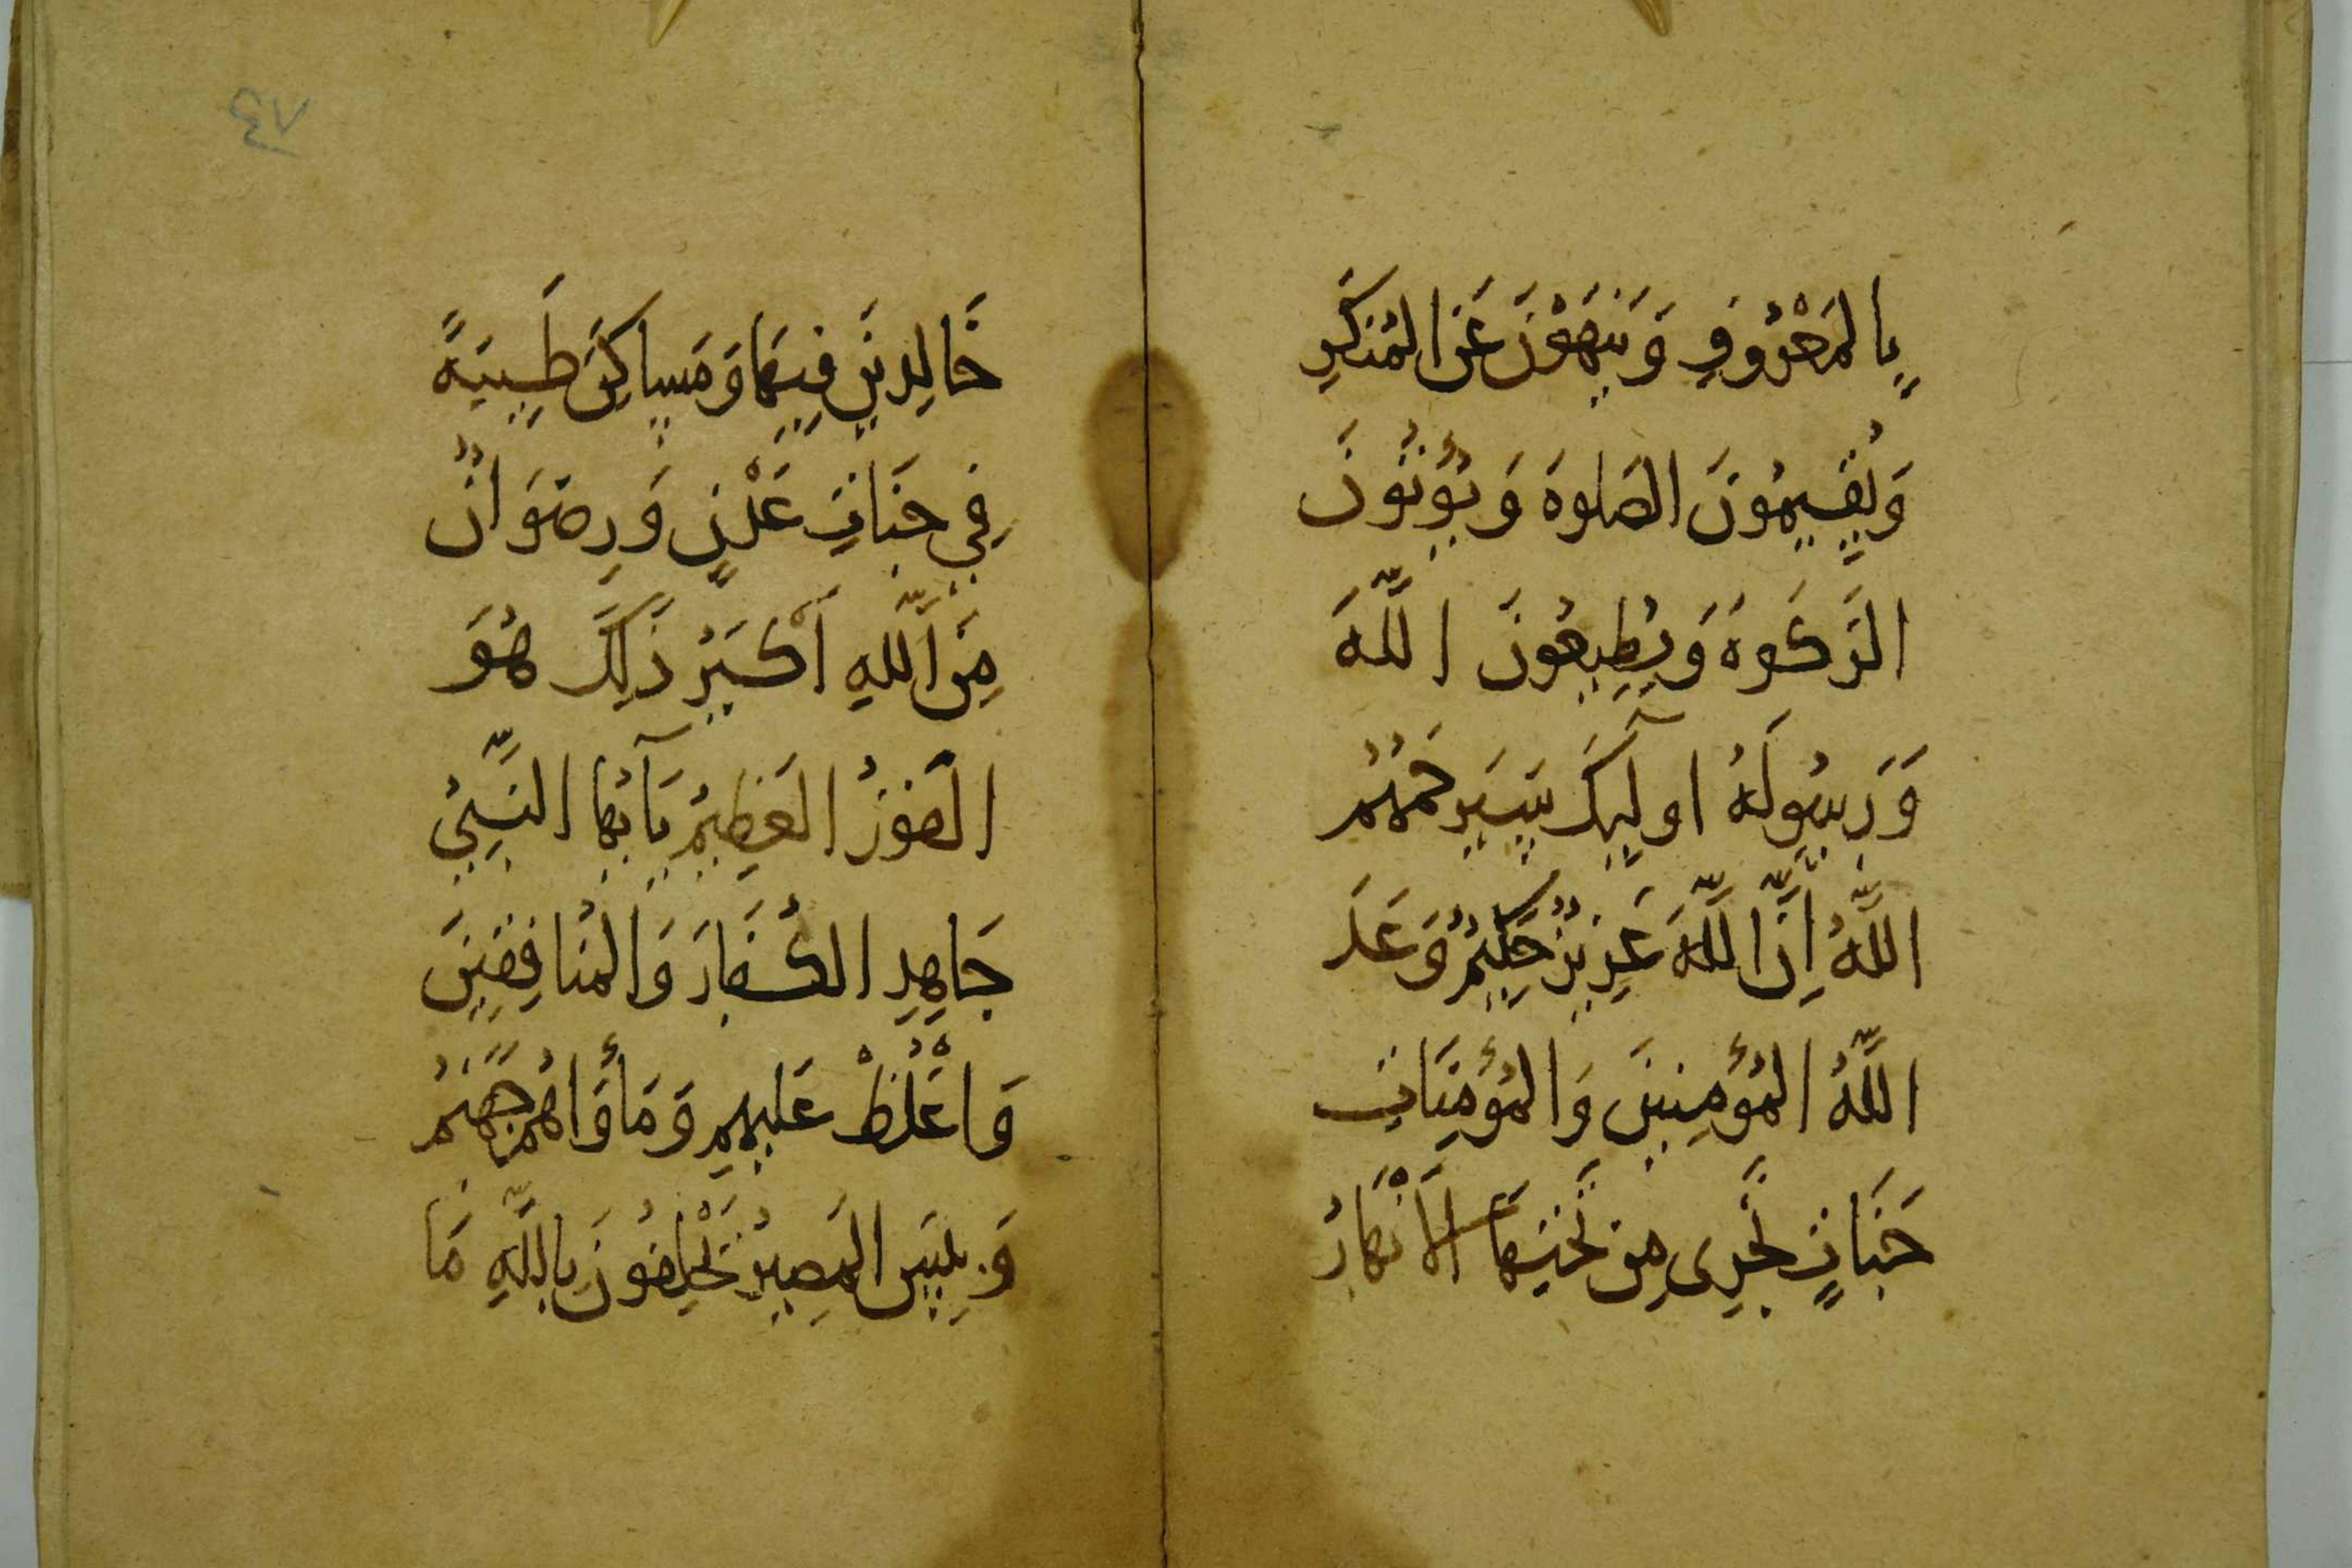 بِالمَعْرُوفِ وَيَنهَوْنَ عَنِ المُنكَرِ
وَيُقِيمُونَ الصَلوةَ وَيُؤتُونَ
الزَكَوةَ وَيُطِيعُونَ اللَّهَ
وَرَسُولَهُ اولَٓيِكَ سَيَرحَمُهُمُ
اللَّهُ اِنَّ اللَّهَ عَزِيزٌ حَكِيمٌ وَعَدَ
اللَّهُ المُؤمِنِينَ وَالمُؤمِنَاتِ
جَنَاتٍ تَجرِى مِن تَحتِهَا الأَنْهَارُ
خَالِدِينَ فِيهَا وَمَسَاكِنَ طَيِبَةً
فِي جَنَاتِ عَدْنٍ وَرِضوَانٌ
مِنَ اللَّهِ أَكْبَرُ ذَلِكَ هُوَ
الفَوزُ العَظِيمُ يَآ أيُهَا النَبِيُّ
جَاهِدِ الكُفَارَ وَالمُنَافِقِينَ
وَاغْلُظْ عَلَيهِم وَمَأوَاهُم جَهَنَمُ
وَبِيسَ المَصِيرُ يَحْلِفُونَ بِاللَّهِ مَا